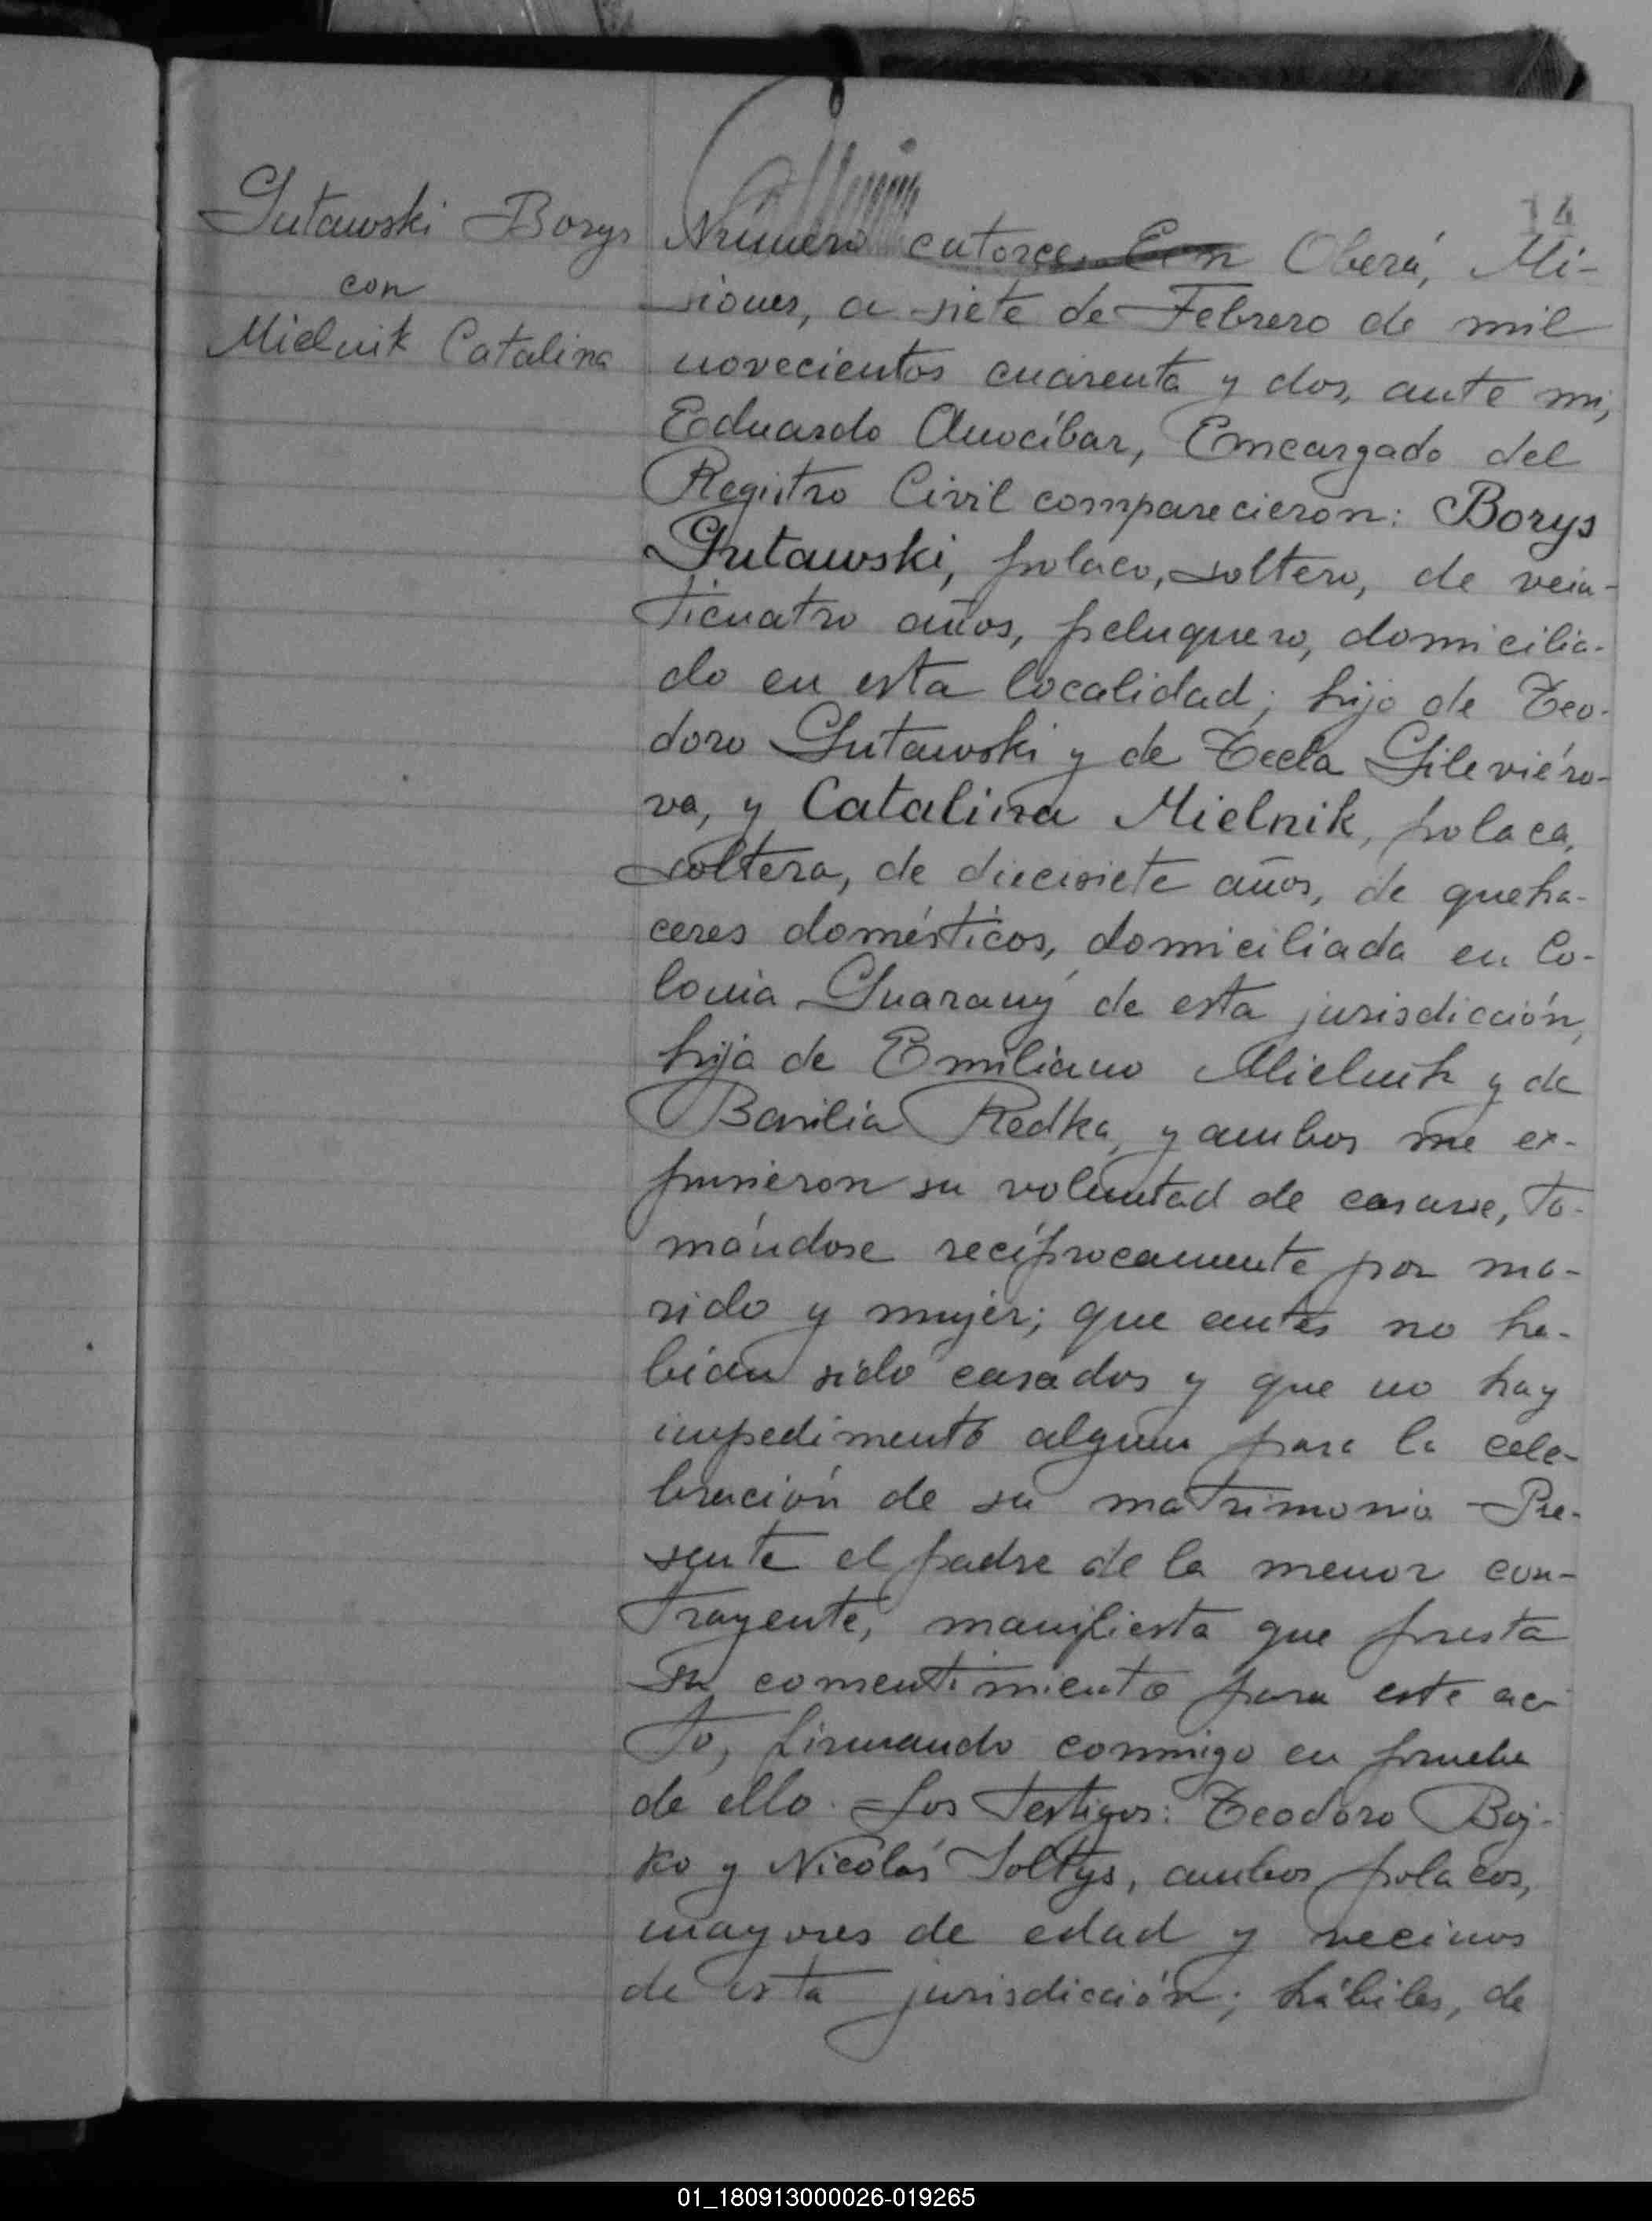 14
Gutawski Borys
con
Mielnik Catalina
Número catorce. En Oberá, Mi-
siones, a siete de Febrero de mil
novecientos cuarenta y dos, ante mí,
Eduardo Anocíbar, Encargado del
Registro Civil comparecieron: Borys
Gutawski, polaco, soltero, de vein-
ticuatro años, peluquero, domicilia-
do en esta localidad; hijo de Teo-
doro Gutawski y de Tecla Gileviéro-
va, y Catalina Mielnik, polaca,
soltera, de diecisiete años, de queha-
ceres domésticos, domiciliada en Co-
lonia Guarany de esta jurisdicción,
hija de Emiliano Mielnik y de
Basilia Redka, y ambos me ex-
pusieron su voluntad de casarse, to-
mándose recíprocamente por ma-
rido y mujer; que antes no ha-
bían sido casados y que no hay
impedimento alguno para la cele-
bración de su matrimonio. Pre-
sente el padre de la menor con-
trayente, manifiesta que presta
su consentimiento para este ac-
to, firmando conmigo en prueba
de ello. Los testigos: Teodoro Boj-
ko y Nicolás Soltys, ambos polacos,
mayores de edad y vecinos
de esta jurisdicción; hábiles, de
01_180913000026-019265